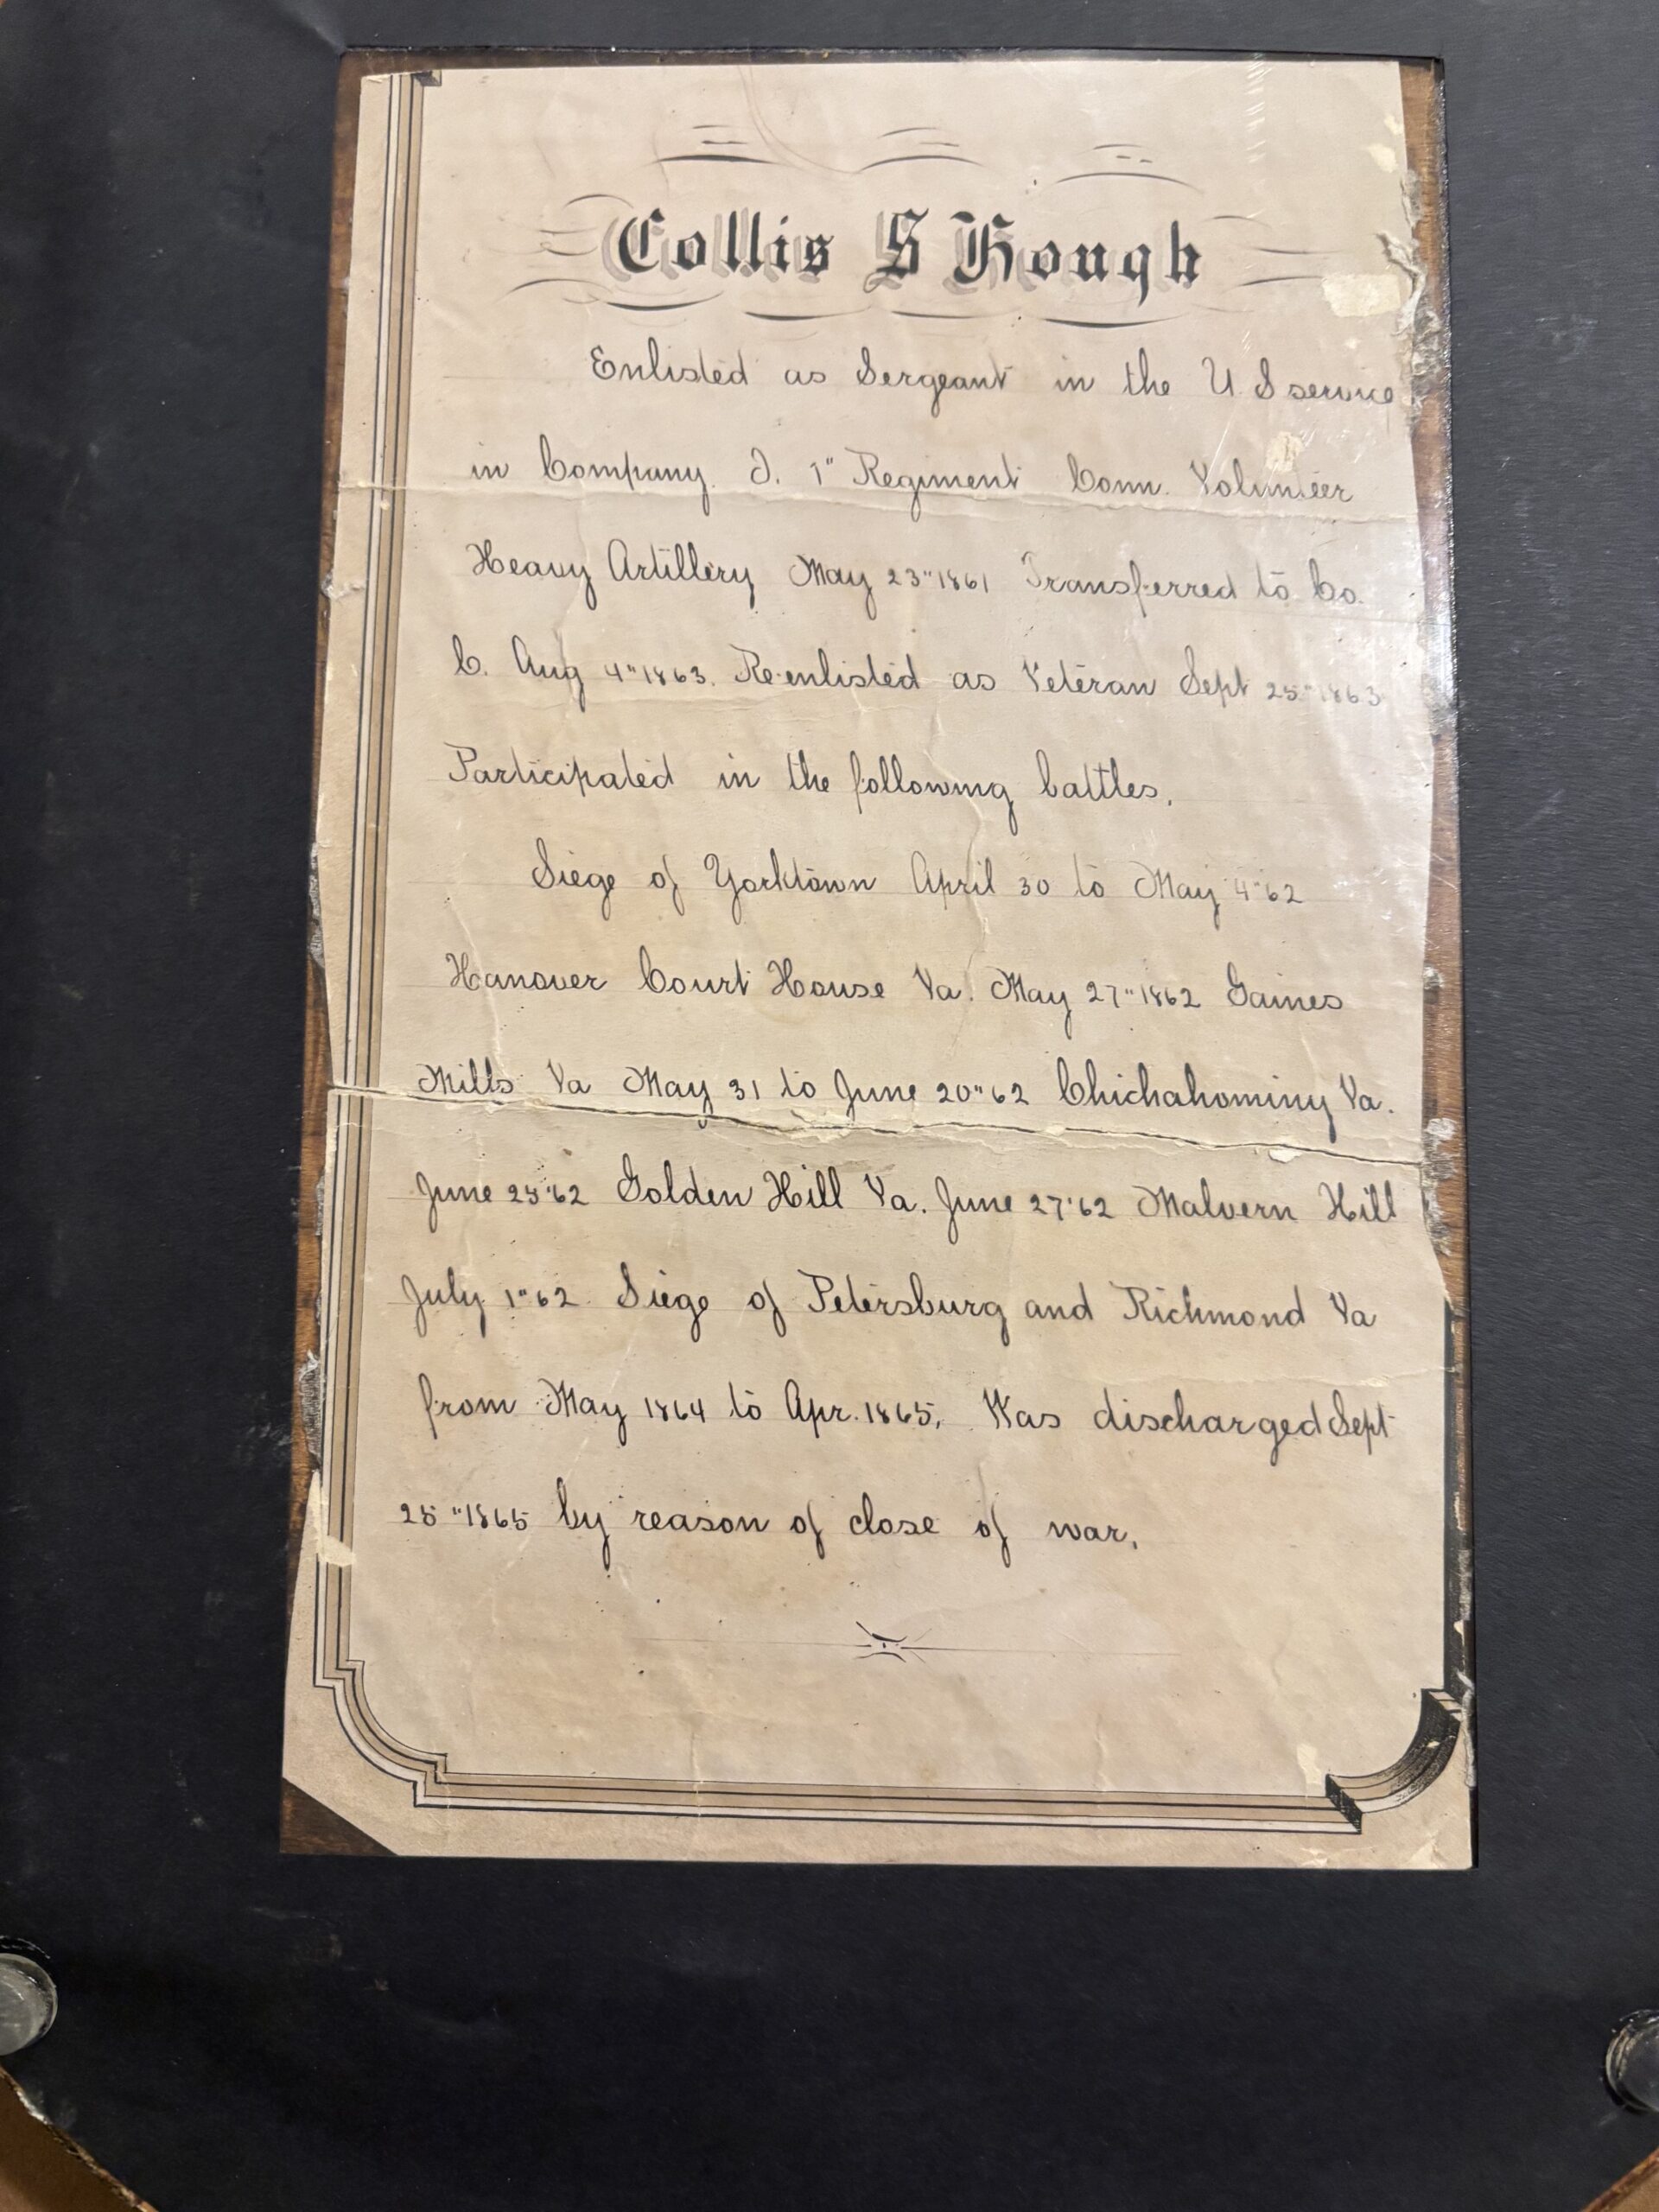 Collis S Hough
Enlisted as Sergeant in the U S service
in Company. I. 1" Regiment Conn. Volunteer
Heavy Artillery May 23" 1861 Transferred to Co.
C. Aug 4" 1863. Re-enlisted as Veteran Sept 25" 1863
Participated in the following battles.
Siege of Yorktown April 30 to May 4" 62
Hanover Court House Va. May 27" 1862 Gaines
Mills Va May 31 to June 20" 62 Chickahominy Va.
June 25" 62 Golden Hill Va. June 27" 62 Malvern Hill
July 1" 62 Siege of Petersburg and Richmond Va
from May 1864 to Apr. 1865. Was discharged Sept
25" 1865 by reason of close of war.